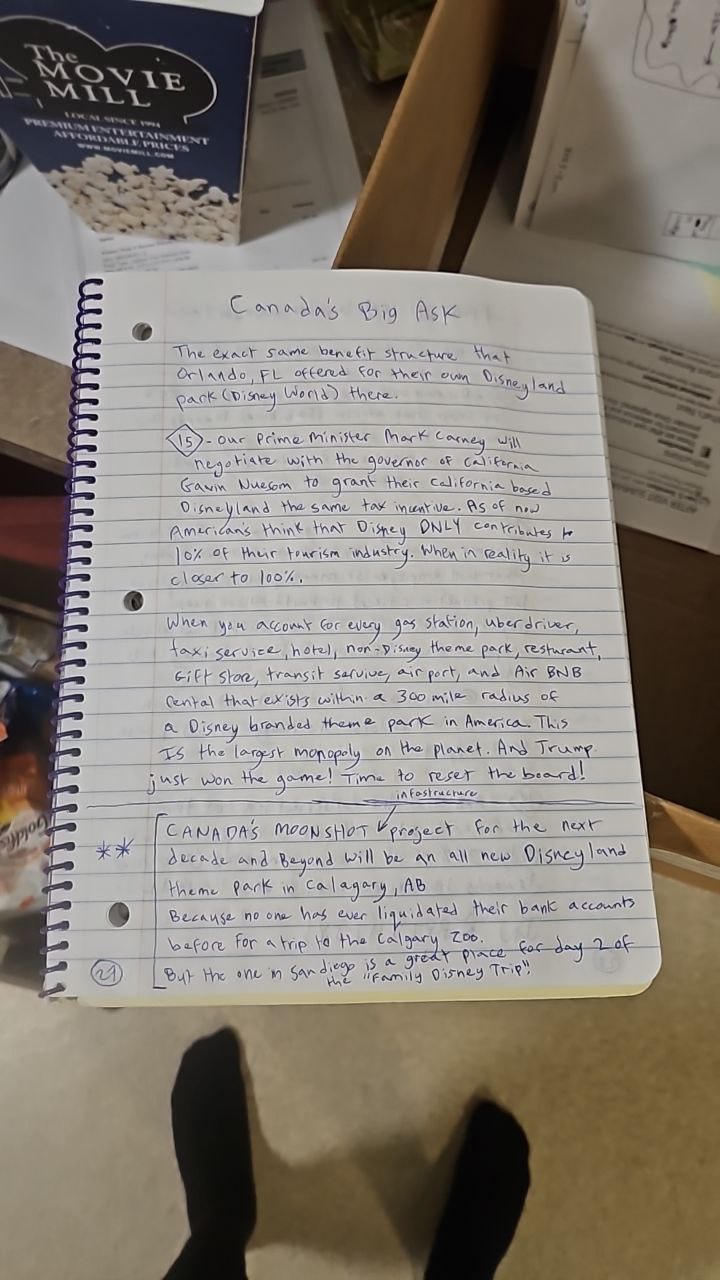 The
MOVIE
MILL
LOCAL SINCE 1994
PREMIUM ENTERTAINMENT
AFFORDABLE PRICES
WWW.MOVIEMILL.COM
Canada's Big Ask
The exact same benefit structure that
Orlando, FL offered for their own Disneyland
park (Disney World) there.
15 - Our Prime Minister Mark Carney will
negotiate with the governor of California
Gavin Nuesom to grant their California based
Disneyland the same tax incentive. As of now
American's think that Disney ONLY contributes to
10% of their tourism industry. When in reality it is
closer to 100%.
When you account for every gas station, uber driver,
taxi service, hotel, non-Disney theme park, resturant,
Gift store, transit servive, airport, and Air BNB
rental that exists within a 300 mile radius of
a Disney branded theme park in America. This
Is the largest monopoly on the planet. And Trump
just won the game! Time to reset the board!
infastructure
** CANADA'S MOONSHOT project for the next
decade and Beyond will be an all new Disneyland
theme park in Calagary, AB
Because no one has ever liquidated their bank accounts
before for a trip to the Calgary Zoo.
But the one in San diego is a great place for day 2 of
the "Family Disney Trip"!
29
Goldfis